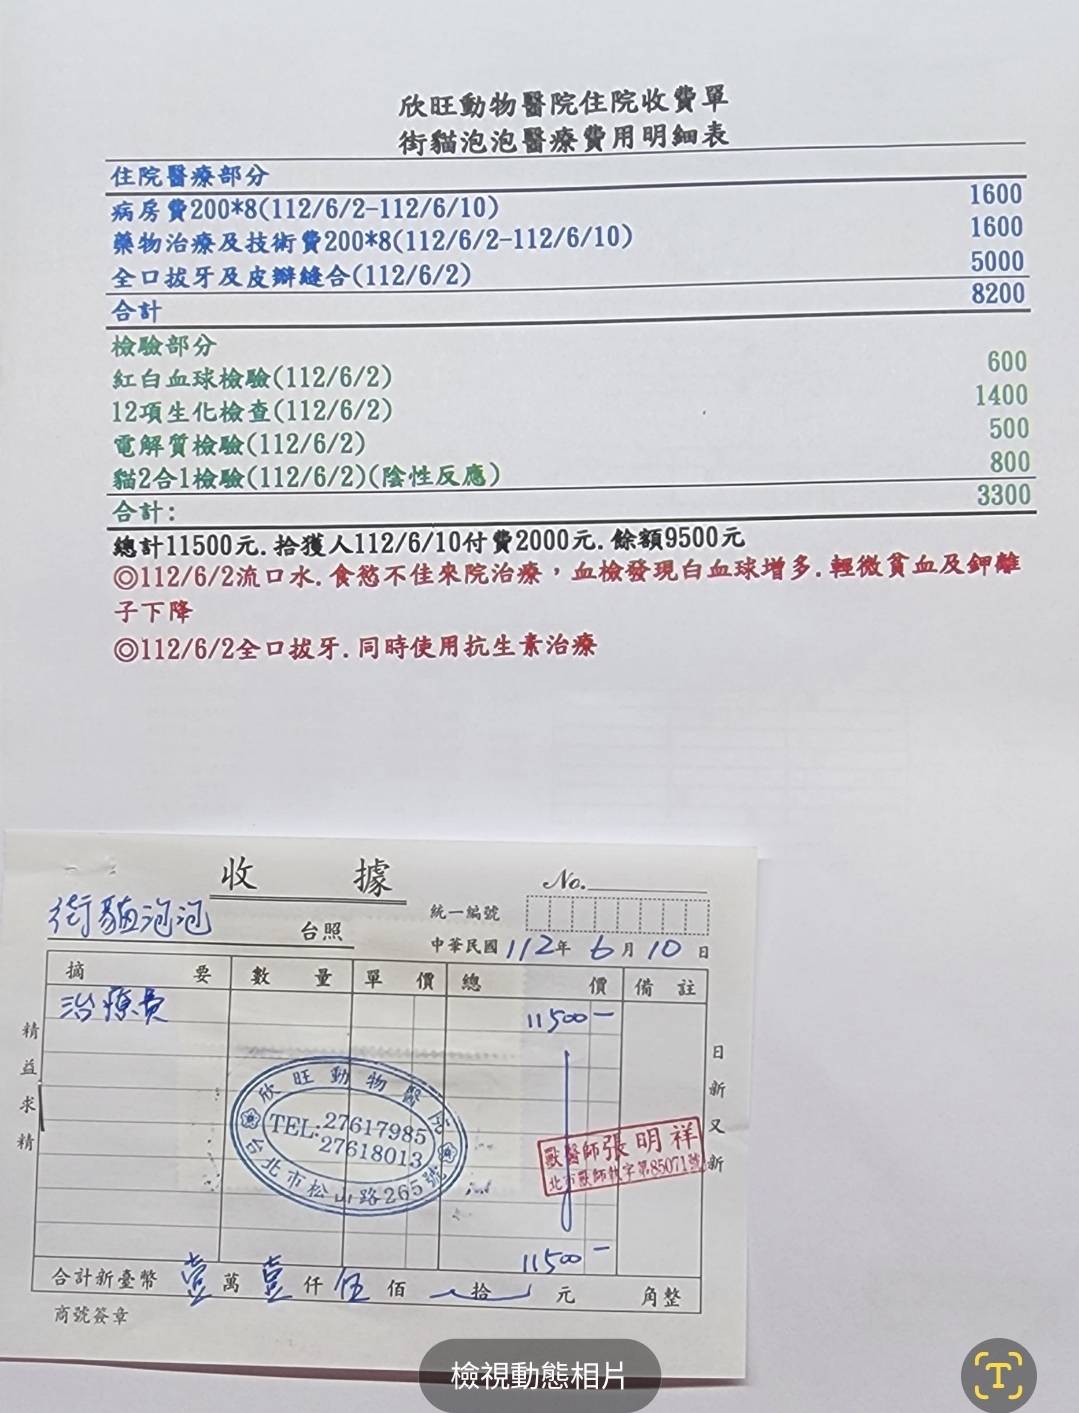 欣旺動物醫院住院收費單
街貓泡泡醫療費用明細表
住院醫療部分
病房費200*8(112/6/2-112/6/10) 1600
藥物治療及技術費200*8(112/6/2-112/6/10) 1600
全口拔牙及皮瓣縫合(112/6/2) 5000
合計 8200
檢驗部分
紅白血球檢驗(112/6/2) 600
12項生化檢查(112/6/2) 1400
電解質檢驗(112/6/2) 500
貓2合1檢驗(112/6/2)(陰性反應) 800
合計: 3300
總計11500元.拾獲人112/6/10付費2000元.餘額9500元
◎112/6/2流口水.食慾不佳來院治療，血檢發現白血球增多.輕微貧血及鉀離
子下降
◎112/6/2全口拔牙.同時使用抗生素治療
收據
No.
街貓泡泡 台照
統一編號
中華民國112年6月10日
摘要 數量 單價 總價 備註
治療費 11500-
精益求精
日新又新
欣旺動物醫院
TEL:27617985
27618013
台北市松山路265號
獸醫師張明祥
北市獸師執字第85071號
11500-
合計新臺幣壹萬壹仟伍佰拾元角整
商號簽章
檢視動態相片
T